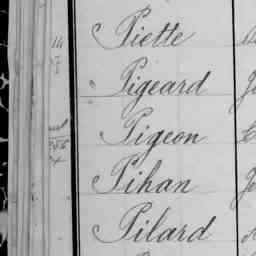 Piette
Pigeard
Pigeon
Pihan
Pilard